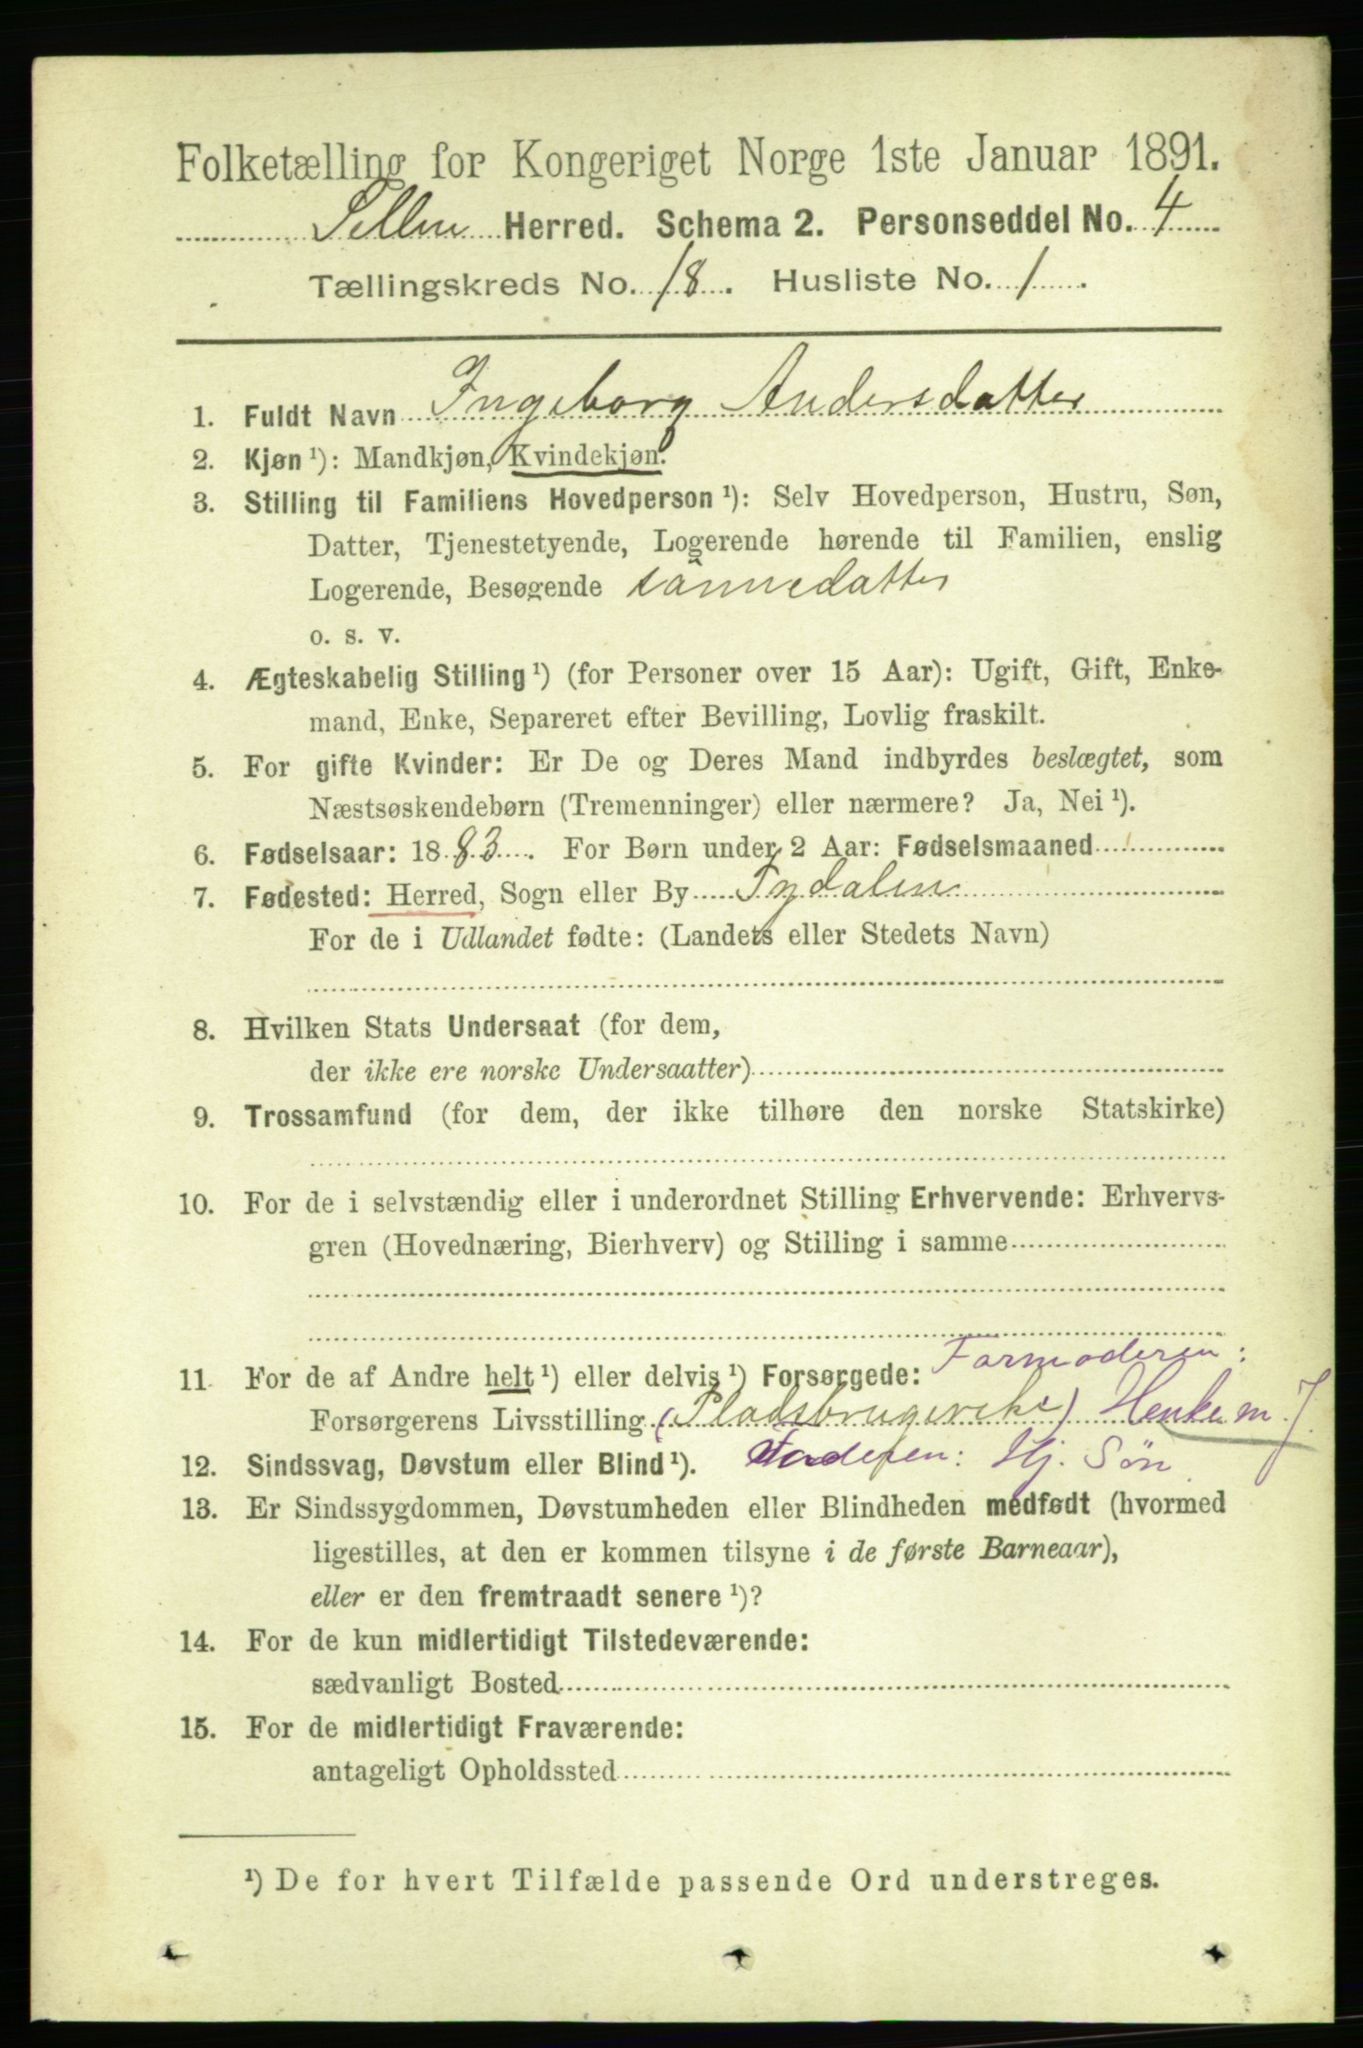 Folketælling for Kongeriget Norge 1ste Januar 1891.
Herred. Schema 2. Personseddel No. 4
Tællingskreds No. 18. Husliste No. 1.
1. Fuldt Navn Ingeborg Andersdatter
2. Kjøn ¹): Mandkjøn, Kvindekjøn.
3. Stilling til Familiens Hovedperson ¹): Selv Hovedperson, Hustru, Søn,
Datter, Tjenestetyende, Logerende hørende til Familien, enslig
Logerende, Besøgende sönnedatter
o. s. v.
4. Ægteskabelig Stilling ¹) (for Personer over 15 Aar): Ugift, Gift, Enke-
mand, Enke, Separeret efter Bevilling, Lovlig fraskilt.
5. For gifte Kvinder: Er De og Deres Mand indbyrdes beslægtet, som
Næstsøskendebørn (Tremenninger) eller nærmere? Ja, Nei ¹).
6. Fødselsaar: 1883. For Børn under 2 Aar: Fødselsmaaned
7. Fødested: Herred, Sogn eller By Tydalen
For de i Udlandet fødte: (Landets eller Stedets Navn)
8. Hvilken Stats Undersaat (for dem,
der ikke ere norske Undersaatter)
9. Trossamfund (for dem, der ikke tilhøre den norske Statskirke)
10. For de i selvstændig eller i underordnet Stilling Erhvervende: Erhvervs-
gren (Hovednæring, Bierhverv) og Stilling i samme
Farmoderen:
11. For de af Andre helt ¹) eller delvis ¹) Forsørgede:
Forsørgerens Livsstilling (Pladsbrugerske)
12. Sindssvag, Døvstum eller Blind ¹). Faderen: Hj. Sön
13. Er Sindssygdommen, Døvstumheden eller Blindheden medfødt (hvormed
ligestilles, at den er kommen tilsyne i de første Barneaar),
eller er den fremtraadt senere ¹)?
14. For de kun midlertidigt Tilstedeværende:
sædvanligt Bosted
15. For de midlertidigt Fraværende:
antageligt Opholdssted
¹) De for hvert Tilfælde passende Ord understreges.